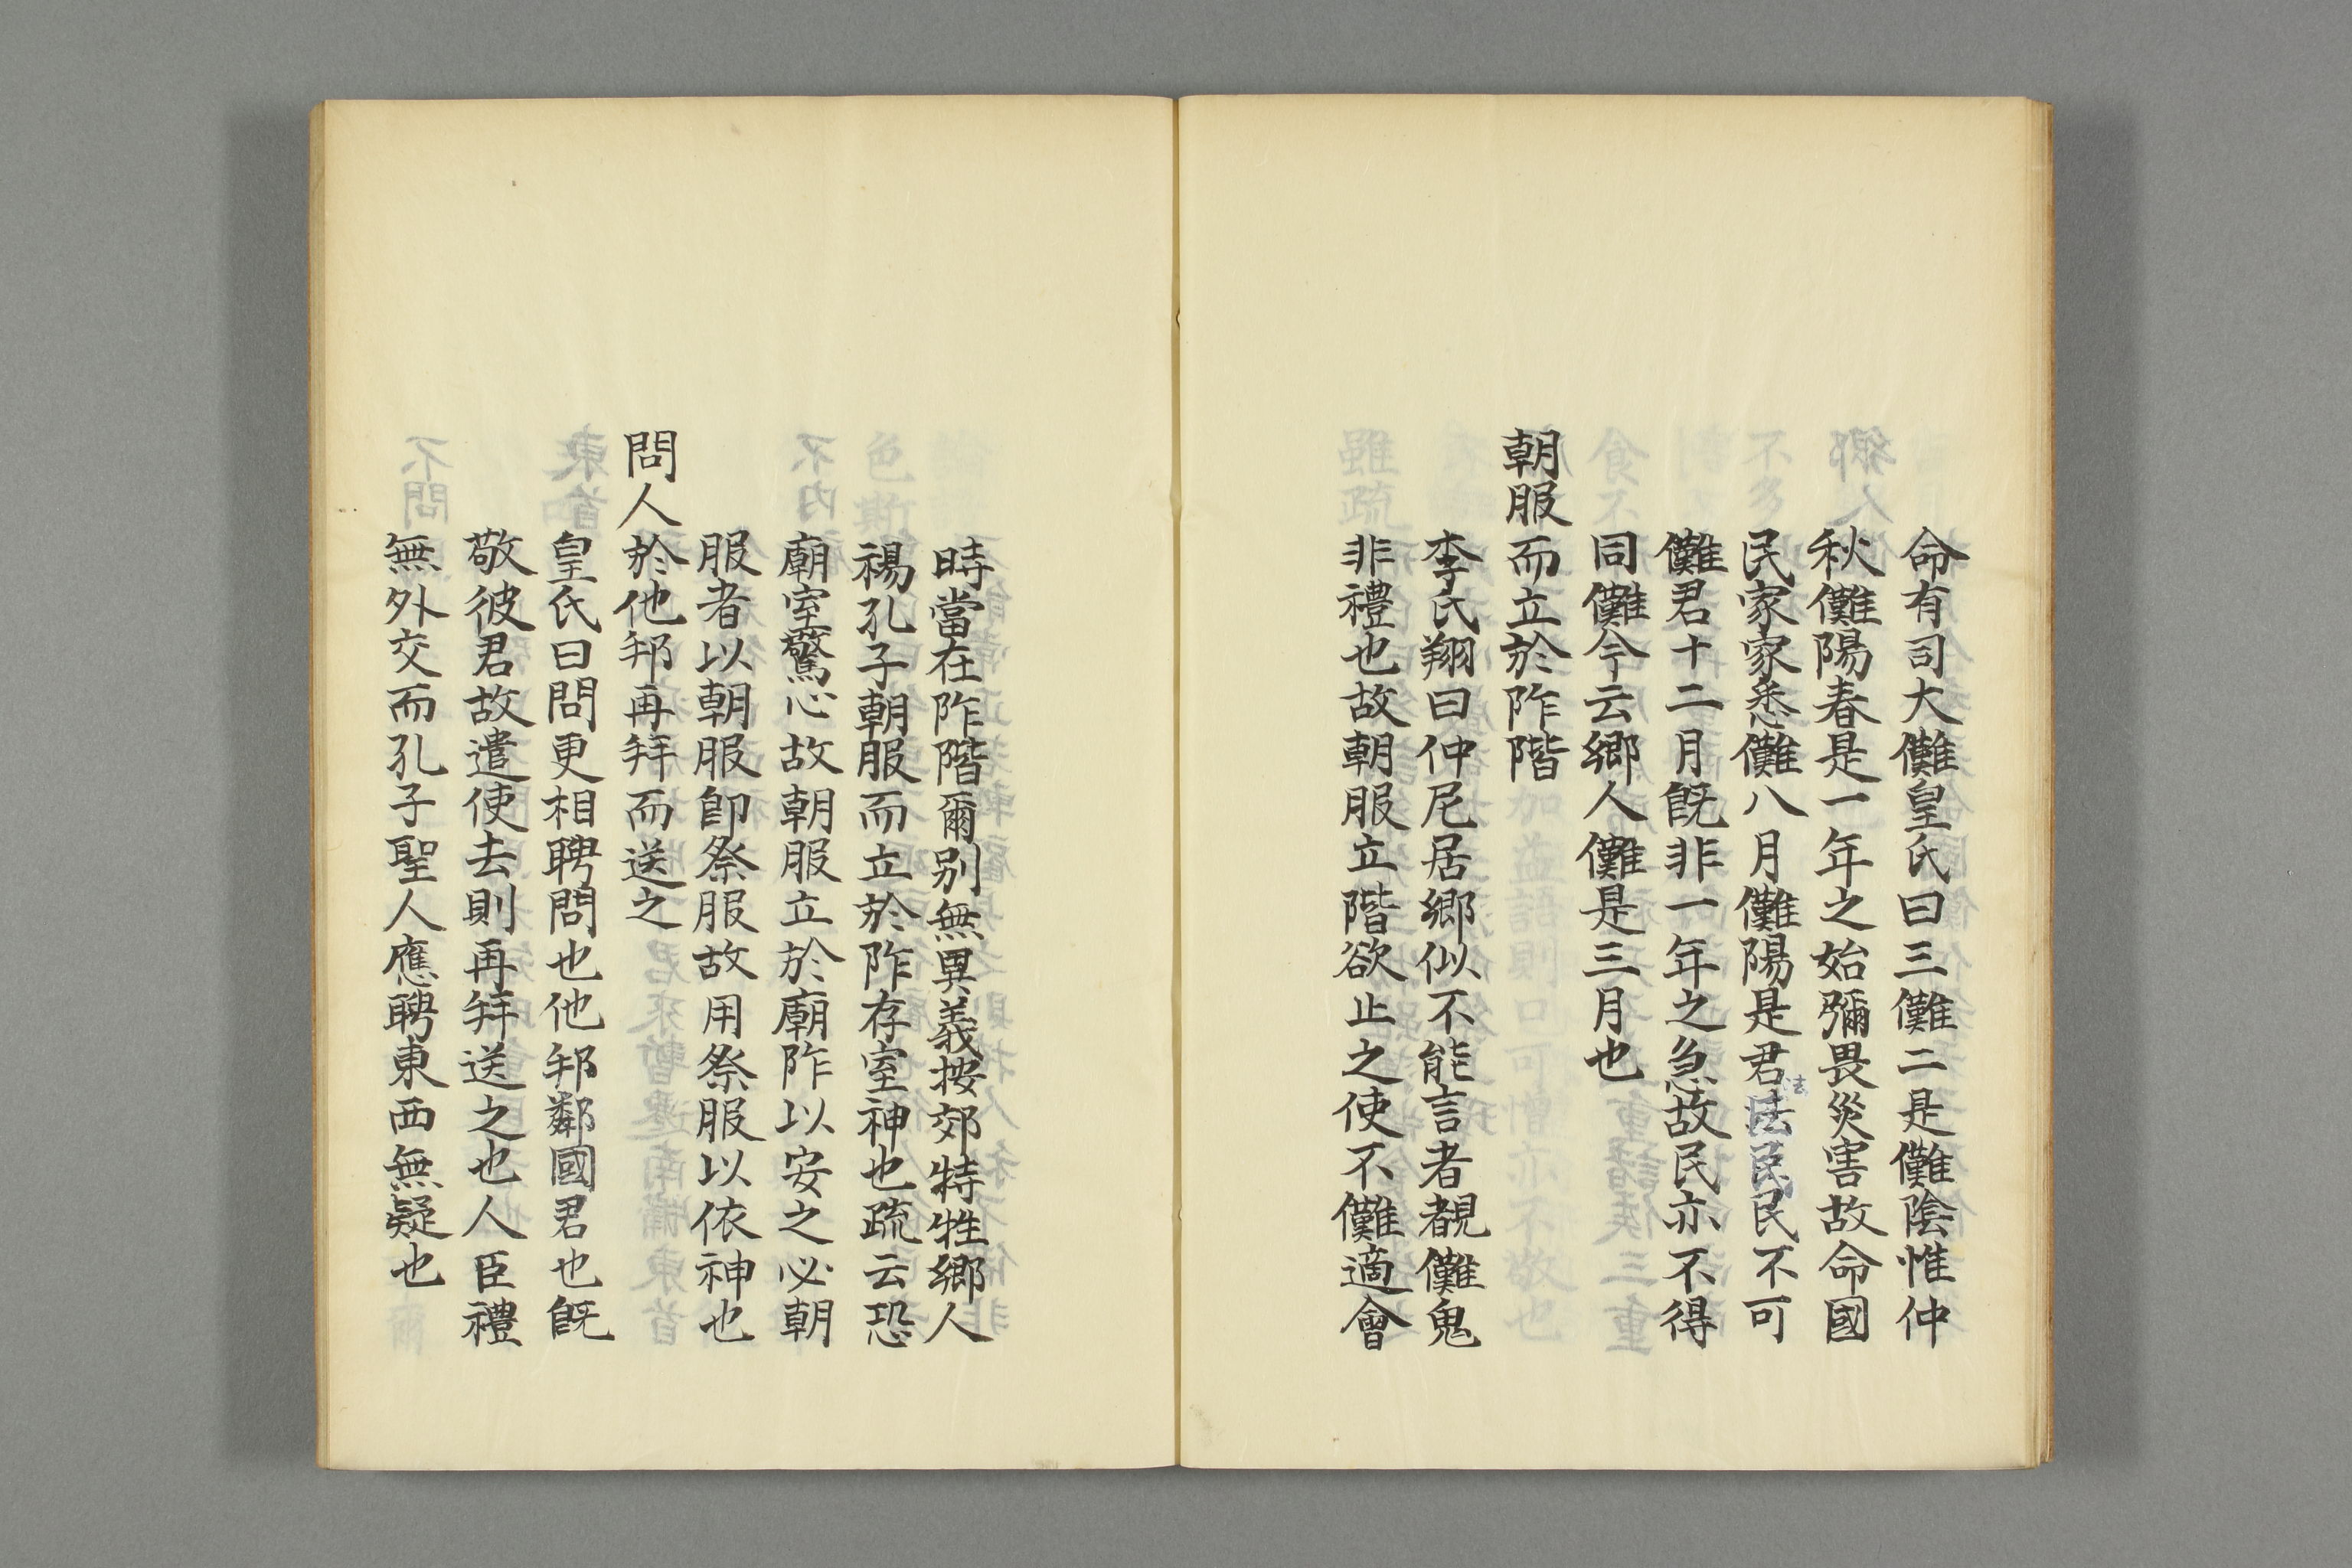 命有司大儺皇氏曰三儺二是儺陰惟仲
秋儺陽春是一年之始彌畏災害故命國
民家家悉儺八月儺陽是君法民民不可
儺君十二月旣非一年之急故民亦不得
同儺今云鄉人儺是三月也
朝服而立於阼階
李氏翔曰仲尼居鄉似不能言者覩儺鬼
非禮也故朝服立階欲止之使不儺適會
時當在阼階爾别無異義按郊特牲鄉人
禓孔子朝服而立於阼存室神也疏云恐
廟室驚心故朝服立於廟阼以安之必朝
服者以朝服卽祭服故用祭服以依神也
問人於他邦再拜而送之
皇氏曰問更相聘問也他邦鄰國君也旣
敬彼君故遣使去則再拜送之也人臣禮
無外交而孔子聖人應聘東西無疑也